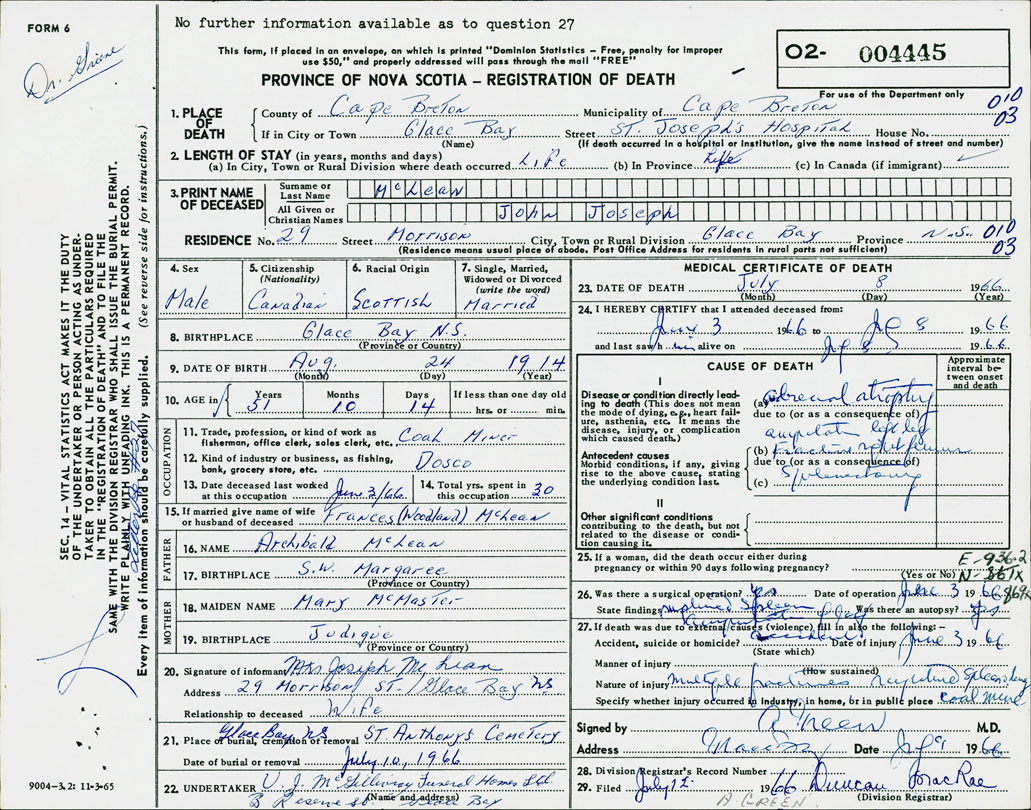 FORM 6
No further information available as to question 27
This form, if placed in an envelope, on which is printed "Dominion Statistics – Free, penalty for improper
use $50," and properly addressed will pass through the mail "FREE"
PROVINCE OF NOVA SCOTIA – REGISTRATION OF DEATH
02- 004445
For use of the Department only
010
03
Dr. Greene
1. PLACE OF DEATH
County of Cape Breton Municipality of Cape Breton
If in City or Town Glace Bay Street St. Joseph's Hospital House No.
(Name) (If death occurred in a hospital or institution, give the name instead of street and number)
2. LENGTH OF STAY (in years, months and days)
(a) In City, Town or Rural Division where death occurred Life (b) In Province Life (c) In Canada (if immigrant)
3. PRINT NAME OF DECEASED
Surname or Last Name McLean
All Given or Christian Names John Joseph
RESIDENCE No. 29 Street Morrison City, Town or Rural Division Glace Bay Province N.S. 010
(Residence means usual place of abode. Post Office Address for residents in rural parts not sufficient) 03
4. Sex
Male
5. Citizenship (Nationality)
Canadian
6. Racial Origin
Scottish
7. Single, Married, Widowed or Divorced (write the word)
Married
8. BIRTHPLACE Glace Bay N.S.
(Province or Country)
9. DATE OF BIRTH Aug. 24 1914
(Month) (Day) (Year)
10. AGE in Years Months Days If less than one day old
51 10 14 hrs. or min.
OCCUPATION
11. Trade, profession, or kind of work as
fisherman, office clerk, sales clerk, etc. Coal Miner
12. Kind of industry or business, as fishing,
bank, grocery store, etc. Dosco
13. Date deceased last worked at this occupation June 3/66 14. Total yrs. spent in this occupation 30
15. If married give name of wife
or husband of deceased Frances (Woodland) McLean
FATHER
16. NAME Archibald McLean
17. BIRTHPLACE S.W. Margaree
(Province or Country)
MOTHER
18. MAIDEN NAME Mary McMaster
19. BIRTHPLACE Judique
(Province or Country)
20. Signature of informant Mrs Joseph McLean
Address 29 Morrison St. Glace Bay NS
Relationship to deceased Wife
21. Place of burial, cremation or removal Glace Bay NS St. Anthony's Cemetery
Date of burial or removal July 10, 1966
22. UNDERTAKER V. J. McGillivray Funeral Homes Ltd.
(Name and address) Reserve St. Glace Bay
MEDICAL CERTIFICATE OF DEATH
23. DATE OF DEATH July 8 1966
(Month) (Day) (Year)
24. I HEREBY CERTIFY that I attended deceased from:
June 3 1966 to July 8 1966
and last saw him alive on July 8 1966
CAUSE OF DEATH
Approximate interval between onset and death
I
Disease or condition directly leading to death (This does not mean the mode of dying, e.g., heart failure, asthenia, etc. It means the disease, injury, or complication which caused death.)
(a) adrenal atrophy
due to (or as a consequence of)
amputation left leg
Antecedent causes
Morbid conditions, if any, giving rise to the above cause, stating the underlying condition last.
(b) Fracture right femur
due to (or as a consequence of)
(c) Splenectomy
II
Other significant conditions
contributing to the death, but not related to the disease or condition causing it.
25. If a woman, did the death occur either during
pregnancy or within 90 days following pregnancy?
(Yes or No)
E-936.2
26. Was there a surgical operation? Yes Date of operation June 3 1966
State findings ruptured Spleen Was there an autopsy? Yes
amputation of leg
27. If death was due to external causes (violence), fill in also the following: –
Accident, suicide or homicide? accident Date of injury June 3 1966
(State which)
Manner of injury
(How sustained)
Nature of injury multiple fractures ruptured spleen
Specify whether injury occurred in industry, in home, or in public place coal mine
Signed by A Green M.D.
Address Date July 9 1966
28. Division Registrar's Record Number
29. Filed July 12 1966 Duncan MacRae
(Division Registrar)
A. GREEN.
SEC. 14 – VITAL STATISTICS ACT MAKES IT THE DUTY
OF THE UNDERTAKER OR PERSON ACTING AS UNDER-
TAKER TO OBTAIN ALL THE PARTICULARS REQUIRED
IN THE "REGISTRATION OF DEATH" AND TO FILE THE
SAME WITH THE DIVISION REGISTRAR WHO SHALL ISSUE THE BURIAL PERMIT.
WRITE PLAINLY WITH UNFADING INK. THIS IS A PERMANENT RECORD.
Every item of information should be carefully supplied. (See reverse side for instructions.)
9004-3.2: 11-3-65